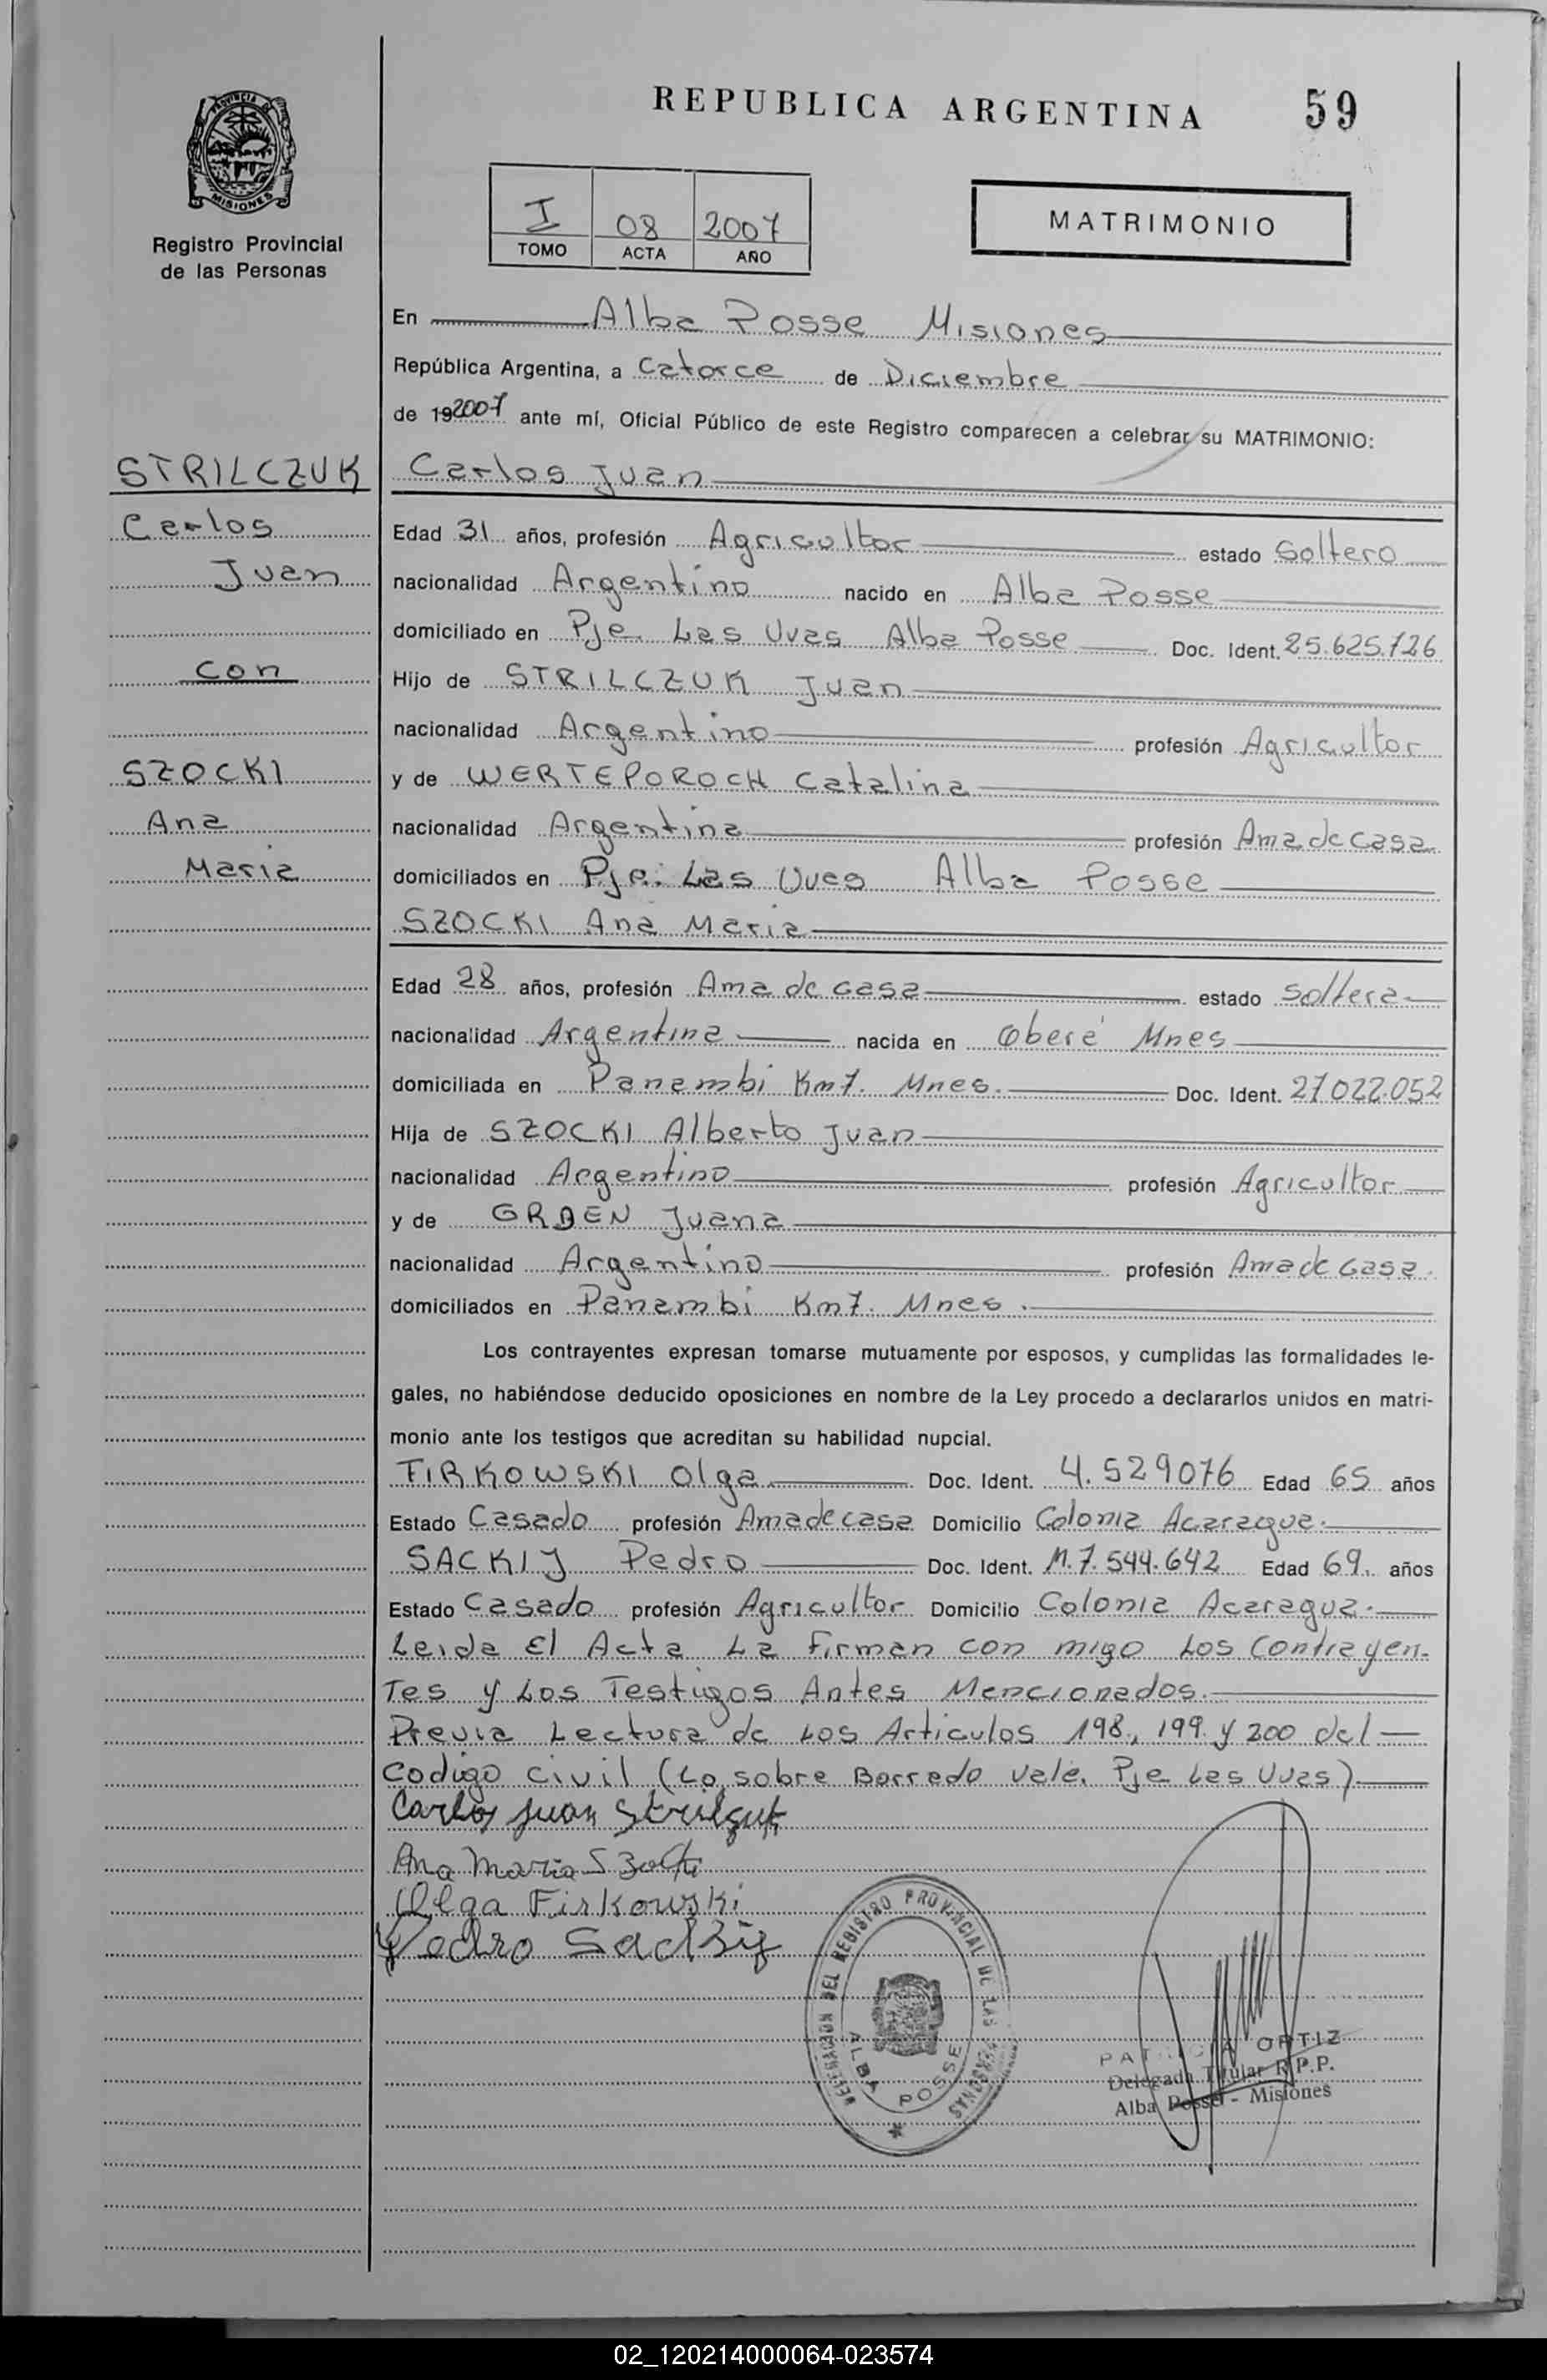 REPUBLICA ARGENTINA 59
PROVINCIA DE
MISIONES
Registro Provincial
de las Personas
I 08 2007
TOMO ACTA AÑO
MATRIMONIO
En Alba Posse Misiones
República Argentina, a Catorce de Diciembre
de 192007 ante mí, Oficial Público de este Registro comparecen a celebrar su MATRIMONIO:
STRILCZUK Carlos Juan
Carlos Edad 31 años, profesión Agricultor estado Soltero
Juan nacionalidad Argentino nacido en Alba Posse
domiciliado en Pje. Las Uvas Alba Posse Doc. Ident. 25.625.726
con Hijo de STRILCZUK Juan
nacionalidad Argentino profesión Agricultor
SZOCKI y de WERTEPOROCH Catalina
Ana nacionalidad Argentina profesión Ama de casa
Maria domiciliados en Pje. Las Uvas Alba Posse
SZOCKI Ana Maria
Edad 28 años, profesión Ama de casa estado soltera
nacionalidad Argentina nacida en Oberá Mnes
domiciliada en Panambi Km7. Mnes. Doc. Ident. 27022.052
Hija de SZOCKI Alberto Juan
nacionalidad Argentino profesión Agricultor
y de Juana
nacionalidad Argentino profesión Ama de casa.
domiciliados en Panambi Km7. Mnes.
Los contrayentes expresan tomarse mutuamente por esposos, y cumplidas las formalidades le-
gales, no habiéndose deducido oposiciones en nombre de la Ley procedo a declararlos unidos en matri-
monio ante los testigos que acreditan su habilidad nupcial.
FIRKOWSKI Olga Doc. Ident. 4.529076 Edad 65 años
Estado Casado profesión Ama de casa Domicilio Colonia Acaragua.
SACKIJ Pedro Doc. Ident. M.7.544.642 Edad 69. años
Estado Casado profesión Agricultor Domicilio Colonia Acaragua.
Leida El Acta La Firman con migo Los Contrayen-
Tes y Los Testigos Antes Mencionados.
Previa Lectura de Los Articulos 198, 199 y 200 del
Codigo civil (Lo sobre Borrado vale. Pje Las Uvas).
Carlos Juan Strilczuk
Ana Maria Szocki
Olga Firkowski
Pedro Sackij
DELEGACION DEL REGISTRO PROVINCIAL DE LAS PERSONAS
ALBA POSSE
PATRICIA ORTIZ
Delegada Titular R.P.P.
Alba Posse - Misiones
02_120214000064-023574